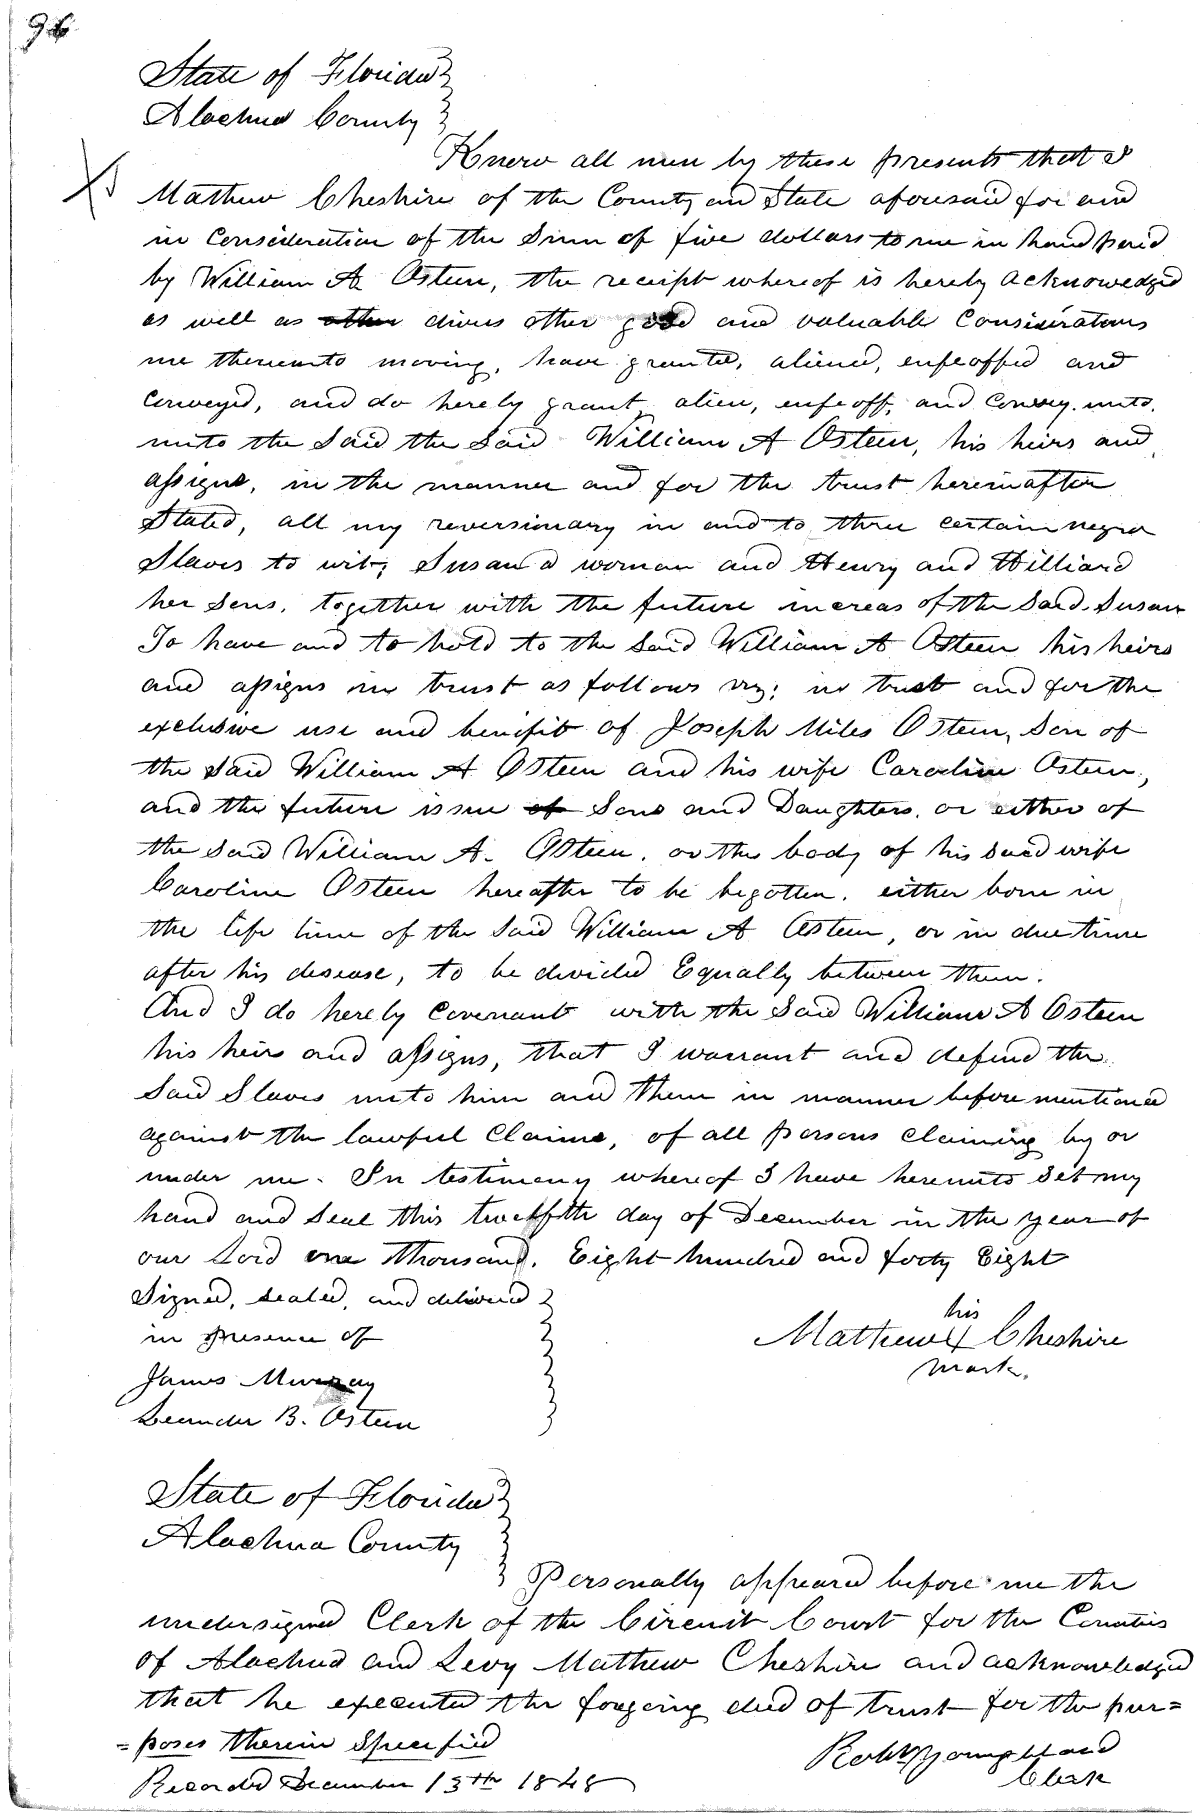 96
State of Florida
Alachua County
Know all men by these presents that I
Mathew Cheshire of the County and State aforesaid for and
in Consideration of the Sum of five dollars to me in hand paid
by William A Osteen, the receipt whereof is hereby acknowedged
as well as other divers other good and valuable Considerations
me thereunto moving, have granted, aliened, enfeoffed and
Conveyed, and do hereby grant, alien, enfeoff, and Convey unto,
unto the Said the Said William A Osteen, his heirs and
assigns, in the manner and for the trust hereinafter
Stated, all my reversionary in and to three certain negro
Slaves to wit; Susan a woman and Henry and Hilliard
her Sons, together with the future increas of the Said Susan
To have and to hold to the Said William A Osteen his heirs
and assigns in trust as follows viz; in trust and for the
exclusive use and benifit of Joseph Miles Osteen, Son of
the Said William A Osteen and his wife Caroline Osteen,
and the future issue of Sons and Daughters, or either of
the Said William A. Osteen, on the body of his Said wife
Caroline Osteen hereafter to be begotten, either born in
the life time of the Said William A Osteen, or in due time
after his desease, to be divided Equally between them.
And I do hereby Covenant with the Said William A Osteen
his heirs and assigns, that I warrant and defend the
Said Slaves unto him and them in manner before mentioned
against the lawful Claims, of all persons claiming by or
under me. In testimony whereof I have hereunto Set my
hand and Seal this twelfth day of December in the year of
our Lord one thousand, Eight hundred and forty Eight
Signed, sealed, and delivered
in presence of
his
Mathew X Cheshire
mark.
James Murray
Leander B. Osteen
State of Florida
Alachua County
Personally appeared before me the
undersigned Clerk of the Circuit Court for the Counties
of Alachua and Levy Mathew Cheshire and acknowledged
that he executed the forgoing deed of trust for the pur=
=poses therein Specified
Recorded December 13th 1848
Clerk